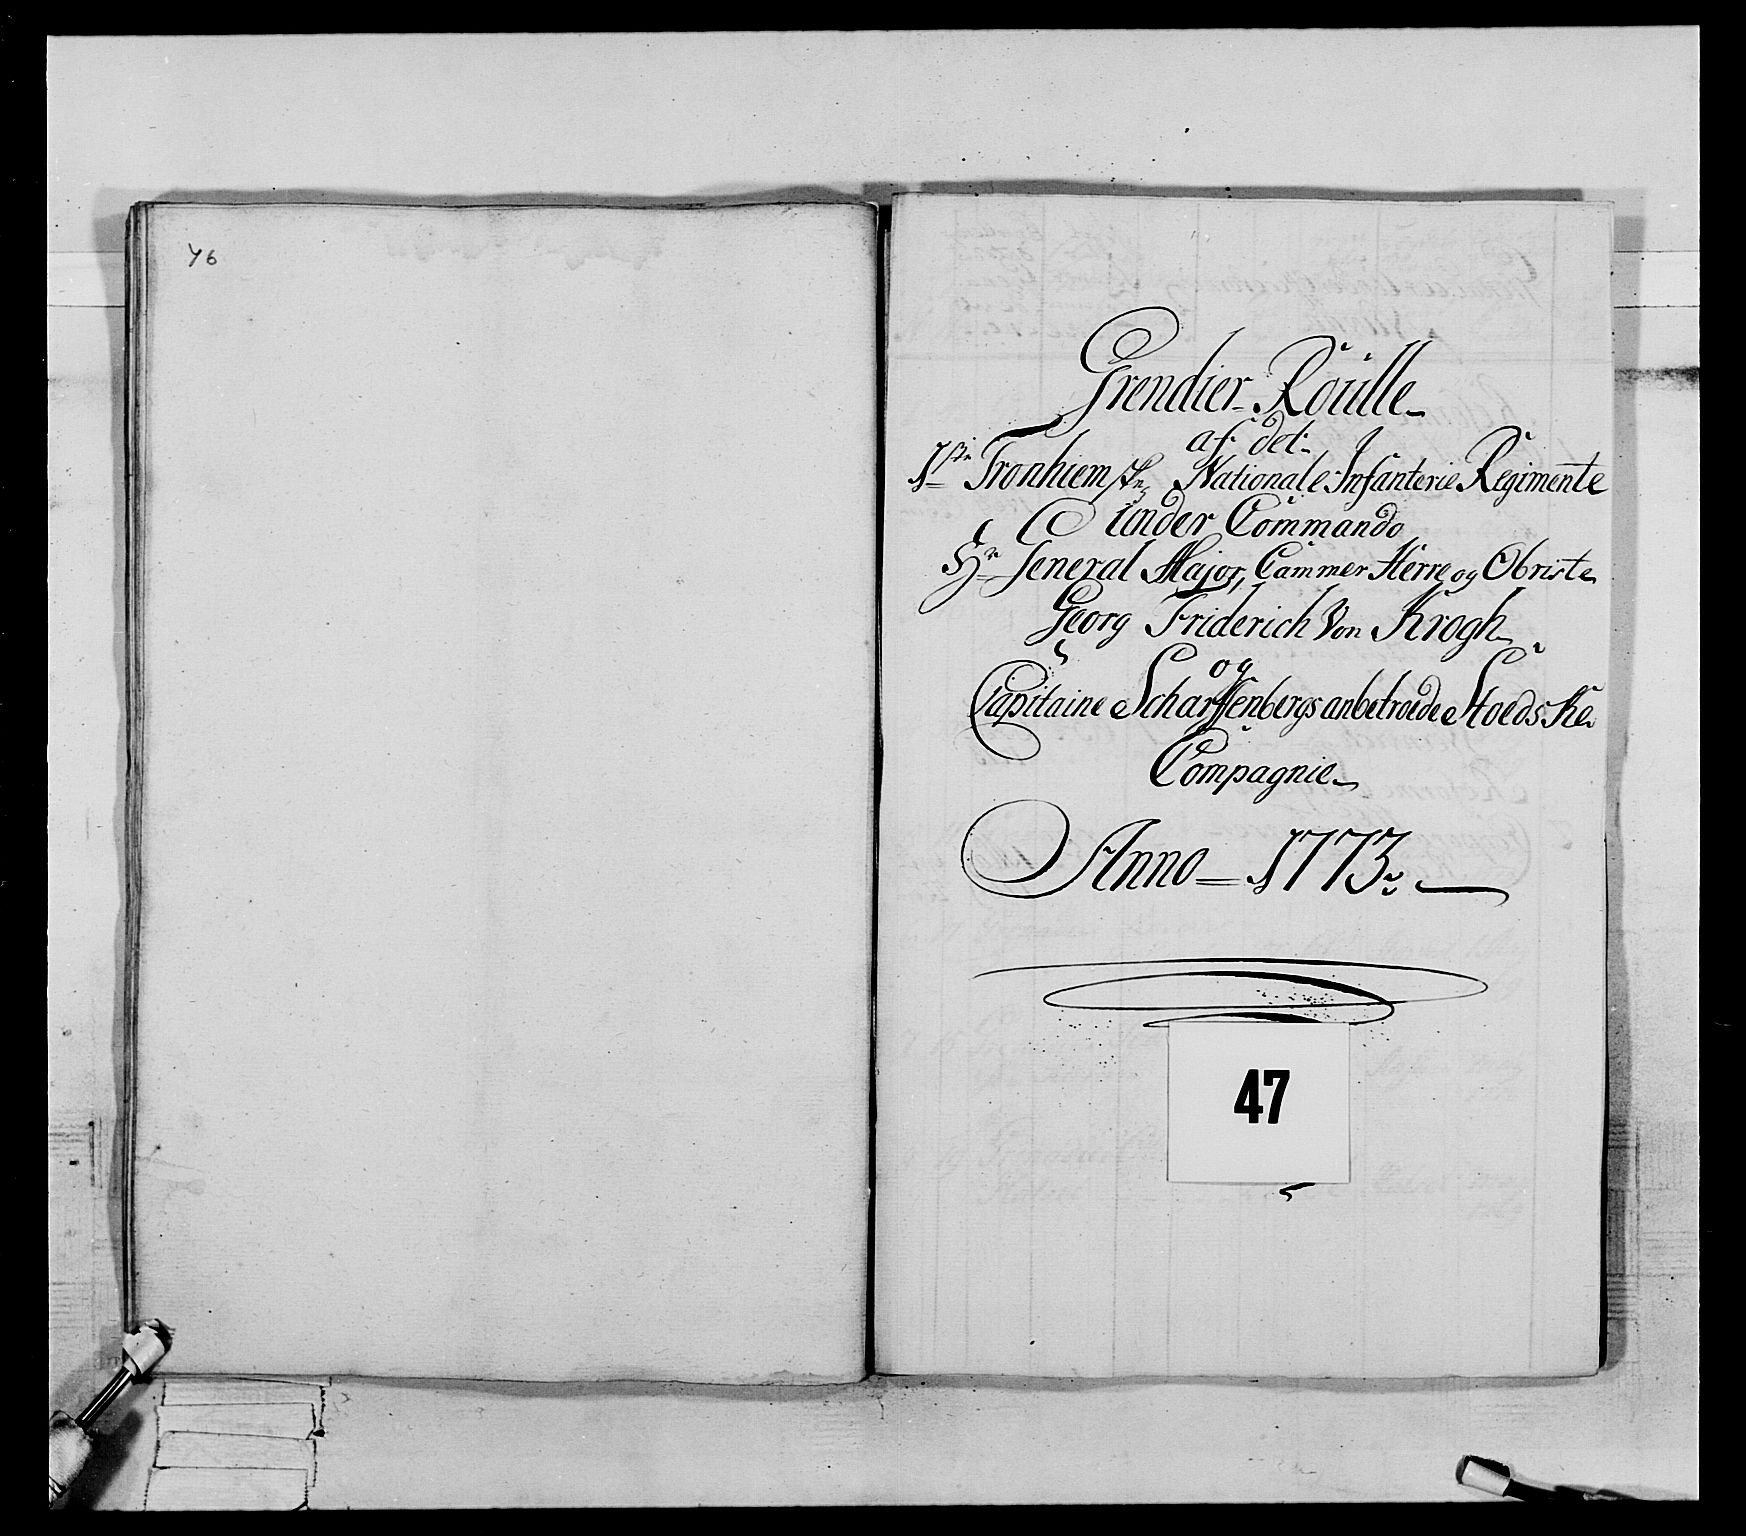 46
Grendier Roülle
af det
1ste Tronhiemske Nationale Infanterie Regimente
Under Commando
Hr General Major, Cammer Herre og Obriste
Georg Friderich Von Krogh
og
Capitaine Scharffenbergs anbetroede Stoedske
Compagnie
Anno 1773
47